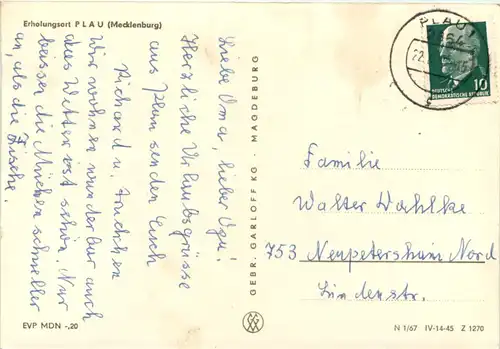 Erholungsort PLAU (Mecklenburg)
Liebe Oma, lieber Opa!
Herzliche Urlaubsgrüsse
aus Plau senden Euch
Richard u. Trudchen
Wir wohnen wunderbar auch
das Wetter ist schön. Nur
beissen die Mücken schneller
an, als die Fische.
EVP MDN -,20
GEBR. GARLOFF KG · MAGDEBURG
PLAU
10
DEUTSCHE
DEMOKRATISCHE REPUBLIK
Familie
Walter Wahlke
753 Neupetershain Nord
Lindenstr.
N 1/67 IV-14-45 Z 1270